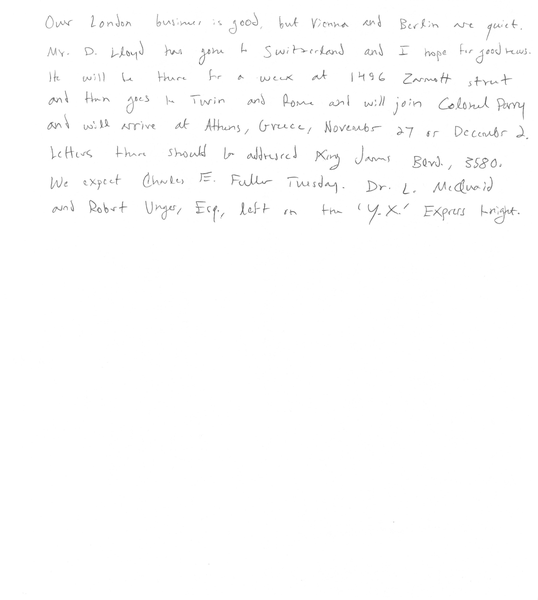 Our London business is good, but Vienna and Berlin are quiet.
Mr. D. Lloyd has gone to Switzerland and I hope for good news.
He will be there for a week at 1496 Zermott street
and then goes to Turin and Rome and will join Colonel Parry
and will arrive at Athens, Greece, November 27 or December 2.
Letters there should be addressed King James Blvd., 3580.
We expect Charles E. Fuller Tuesday. Dr. L. McQuaid
and Robert Unger, Esq., left on the 'Y.X.' Express tonight.